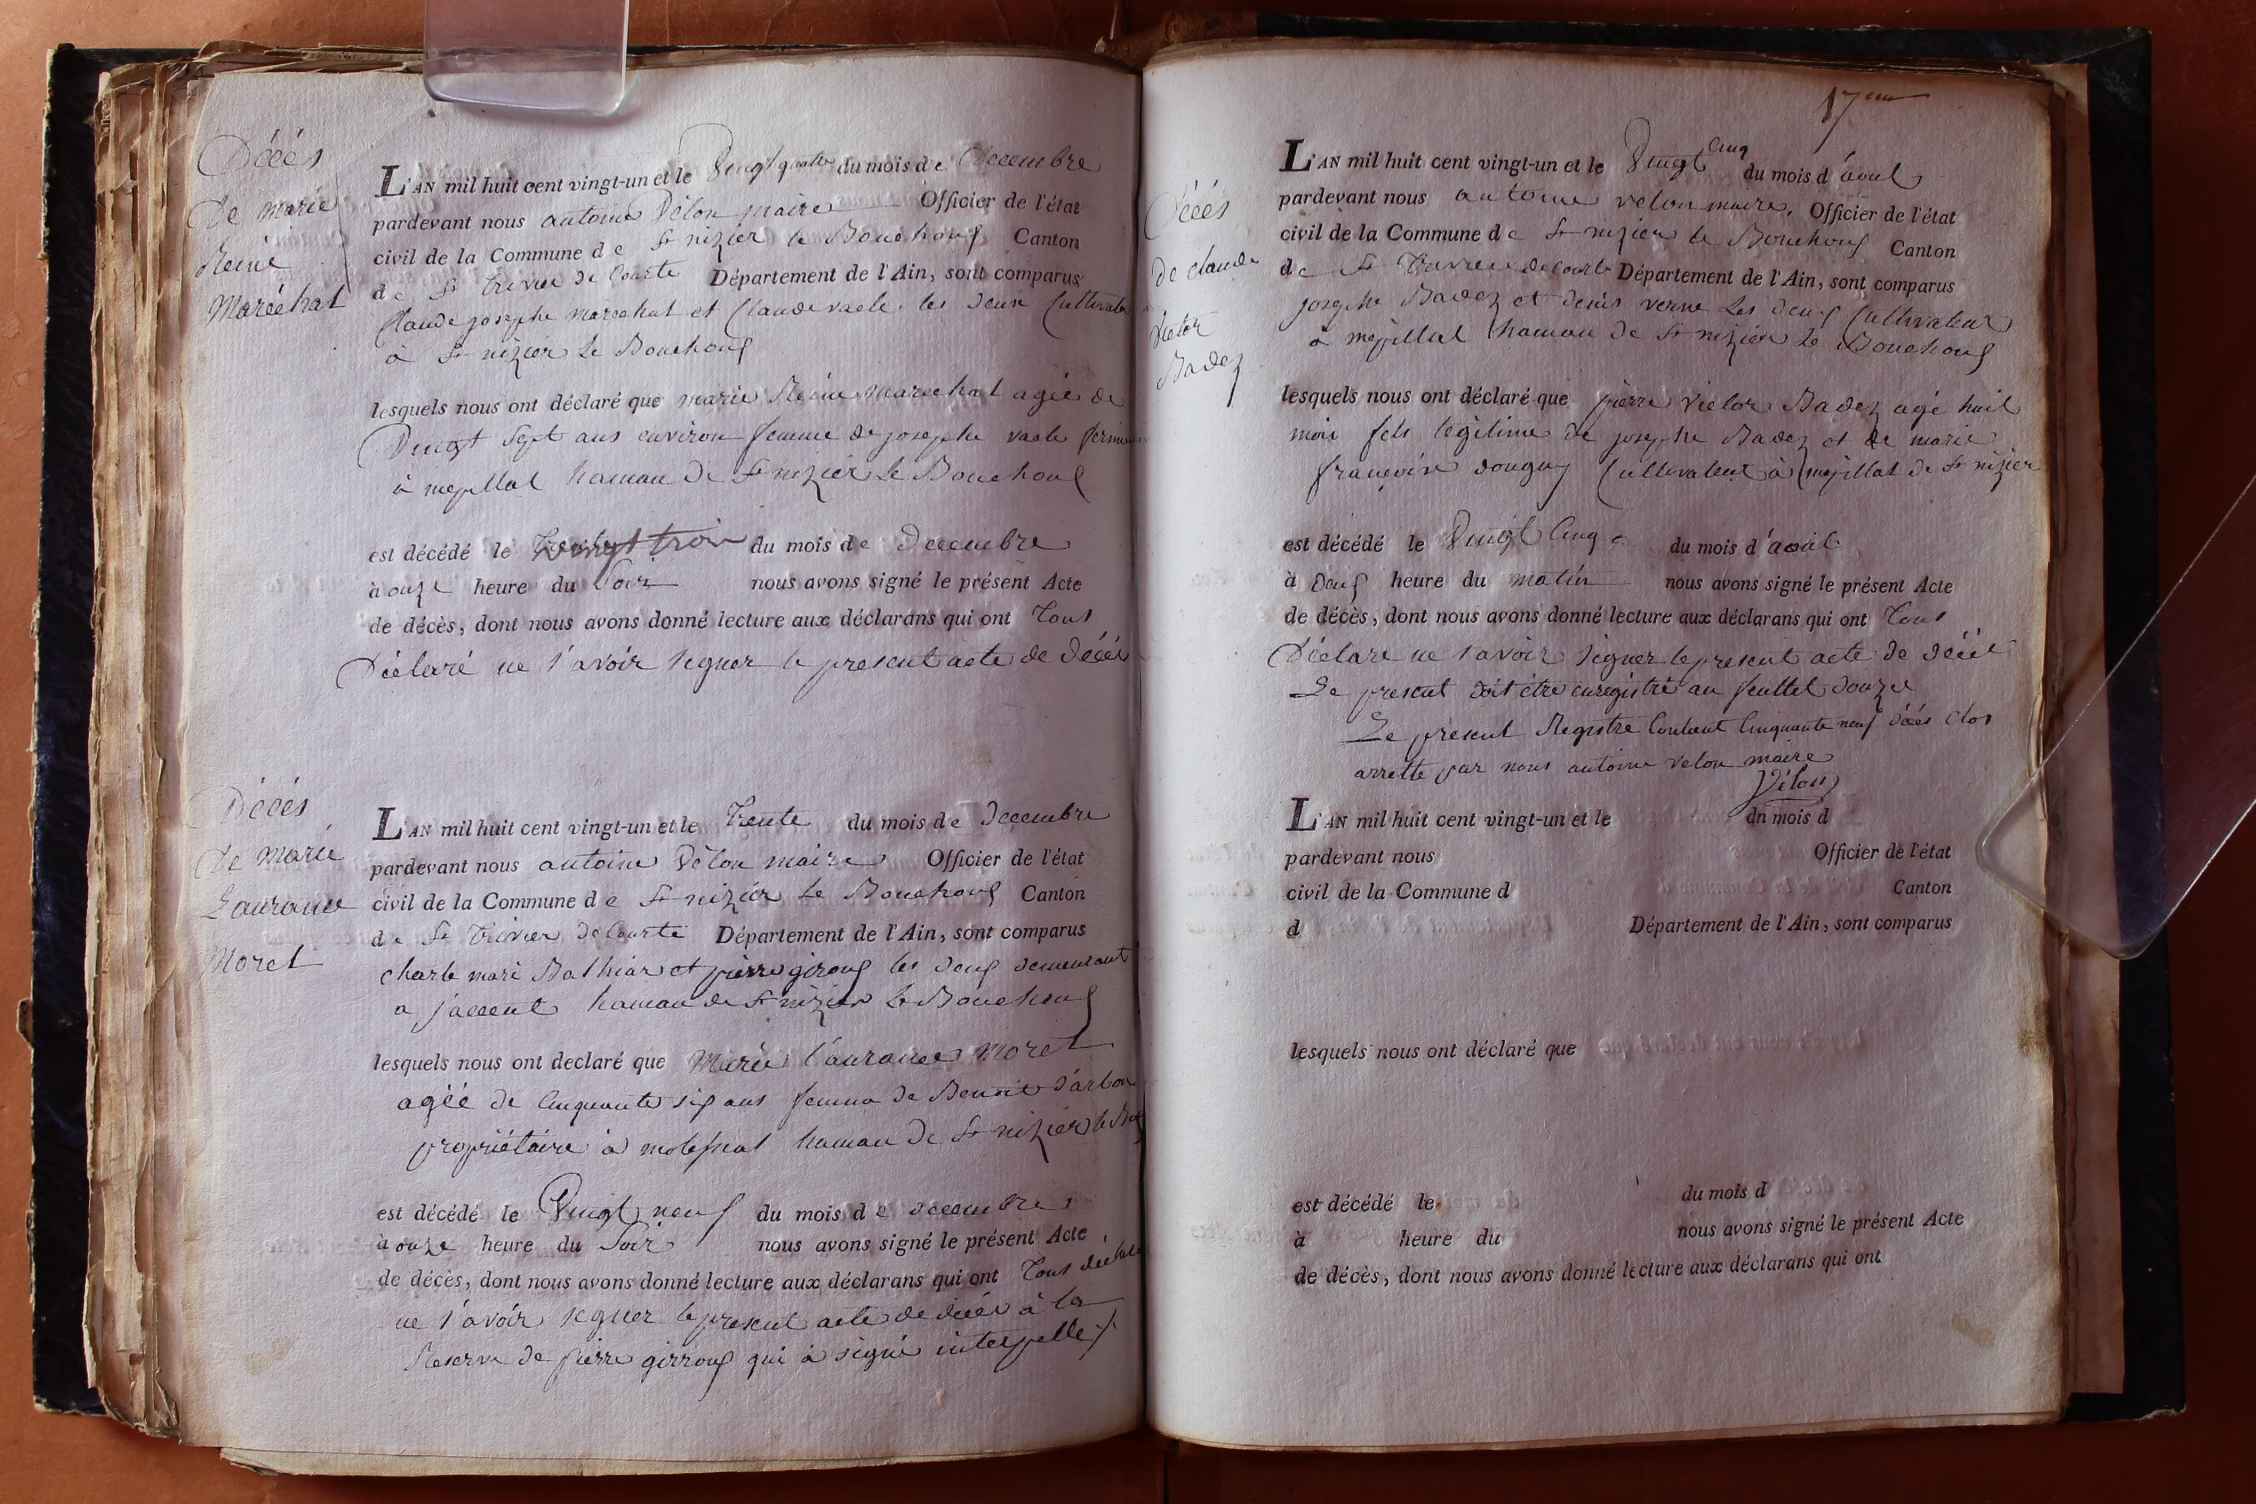 Décés
de marie
Reine
Maréchal
L'AN mil huit cent vingt-un et le Vingt quatre du mois de Decembre
pardevant nous antoine Vélon maire Officier de l'état
civil de la Commune de St nizier le Bouchoux Canton
de St Trivier de Courte Département de l'Ain, sont comparus
Claude josephe marechal et Claude vacle les deux Cultivate
à St nizier le Bouchoux
lesquels nous ont déclaré que marie Reine marechal agée de
Vingt Sept ans environ femme de josephe vacle fermier
à mepillat hamau de St nizier le Bouchoux
est décédé le Vingt trois du mois de Decembre
à onze heure du Soir nous avons signé le présent Acte
de décès, dont nous avons donné lecture aux déclarans qui ont Tous
Déclaré ne s'avoir signer le present acte de décés
Décés
de marie
Laurance
Moret
L'AN mil huit cent vingt-un et le Trente du mois de Decembre
pardevant nous antoine Vélon maire Officier de l'état
civil de la Commune de St nizier le Bouchoux Canton
de St Trivier de Courte Département de l'Ain, sont comparus
charle mari Bathiar et pierre giroux les deux demeurant
a jassent hamau de St nizier le Bouchoux
lesquels nous ont declaré que Marie Laurance Moret
agéé de Cinquante six ans femme de Benoit d'arbon
propriétaire à hamau de St nizier le Bo
est décédé le Vingt neuf du mois de decembre
à onze heure du Soir nous avons signé le présent Acte
de décès, dont nous avons donné lecture aux déclarans qui ont Tous déclaré
ne s'avoir signer le present acte de décés à la
Reserve de pierre girroux qui à signé interpelle
17eme
Décés
de claude
Victor
Badez
L'AN mil huit cent vingt-un et le Vingt Cinq du mois d'avril
pardevant nous antoine velon maire, Officier de l'état
civil de la Commune de St nizier le Bouchoux Canton
de St Trivier de Courte Département de l'Ain, sont comparus
josephe Badez et denis verne les deux Cultivateur
à mepillat hamau de St nizier le Bouchoux
lesquels nous ont déclaré que pierre Victor Badez agé huit
mois fils légitime de josephe Badez et de marie
françoise dougny Cultivateur à mepillat de St nizier
est décédé le Vingt Cinq du mois d'avril
à deux heure du matin nous avons signé le présent Acte
de décès, dont nous avons donné lecture aux déclarans qui ont Tous
Déclaré ne s'avoir signer le present acte de décés
Le present doit être enregistré au feuillet douze
Le présent Registre Contient Cinquante neuf décés clos
arretté par nous antoine velon maire
Vélon
L'AN mil huit cent vingt-un et le dn mois d
pardevant nous Officier de l'état
civil de la Commune d Canton
d Département de l'Ain, sont comparus
lesquels nous ont déclaré que
est décédé le du mois d
à heure du nous avons signé le présent Acte
de décès, dont nous avons donné lecture aux déclarans qui ont